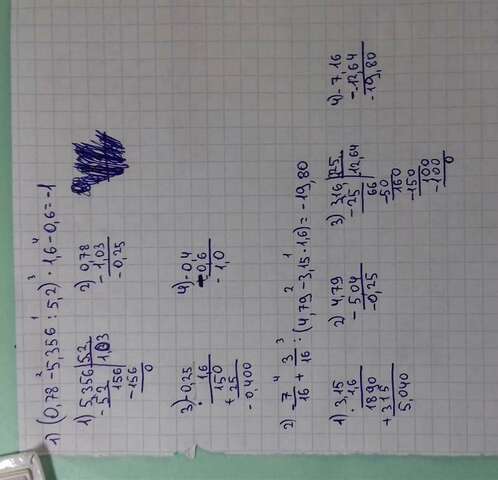 1) (0,78 - 5,356 : 5,2) · 1,6 - 0,6 = -1
2 1 3 4
1) 5,356 | 5,2
- 5 2 | 1,03
156
- 156
0
2) 0,78
- 1,03
- 0,25
3) - 0,25
· 1,6
150
+ 25
- 0,400
4) - 0,4
- 0,6
- 1,0
2) - 7/16 + 3/16 : (4,79 - 3,15 · 1,6) = -19,80
4 3 2 1
1) 3,15
· 1,6
1890
+ 315
5,040
2) 4,79
- 5,04
- 0,25
3) 3,16 | 25
- 25 | 12,64
66
- 50
160
- 150
100
- 100
0
4) - 7,16
- 12,64
- 19,80